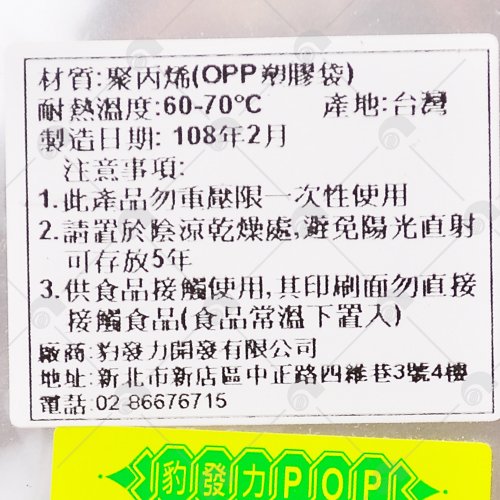 材質:聚丙烯(OPP塑膠袋)
耐熱溫度:60-70℃ 產地:台灣
製造日期: 108年2月
注意事項:
1.此產品勿重壓限一次性使用
2.請置於陰涼乾燥處,避免陽光直射
可存放5年
3.供食品接觸使用,其印刷面勿直接
接觸食品(食品常溫下置入)
廠商:豹發力開發有限公司
地址:新北市新店區中正路四維巷3號4樓
電話:02-86676715
豹發力POP